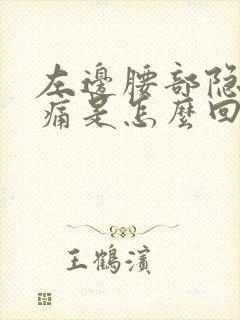 左邊腰部隐
痛是怎麽回
王鶴濱